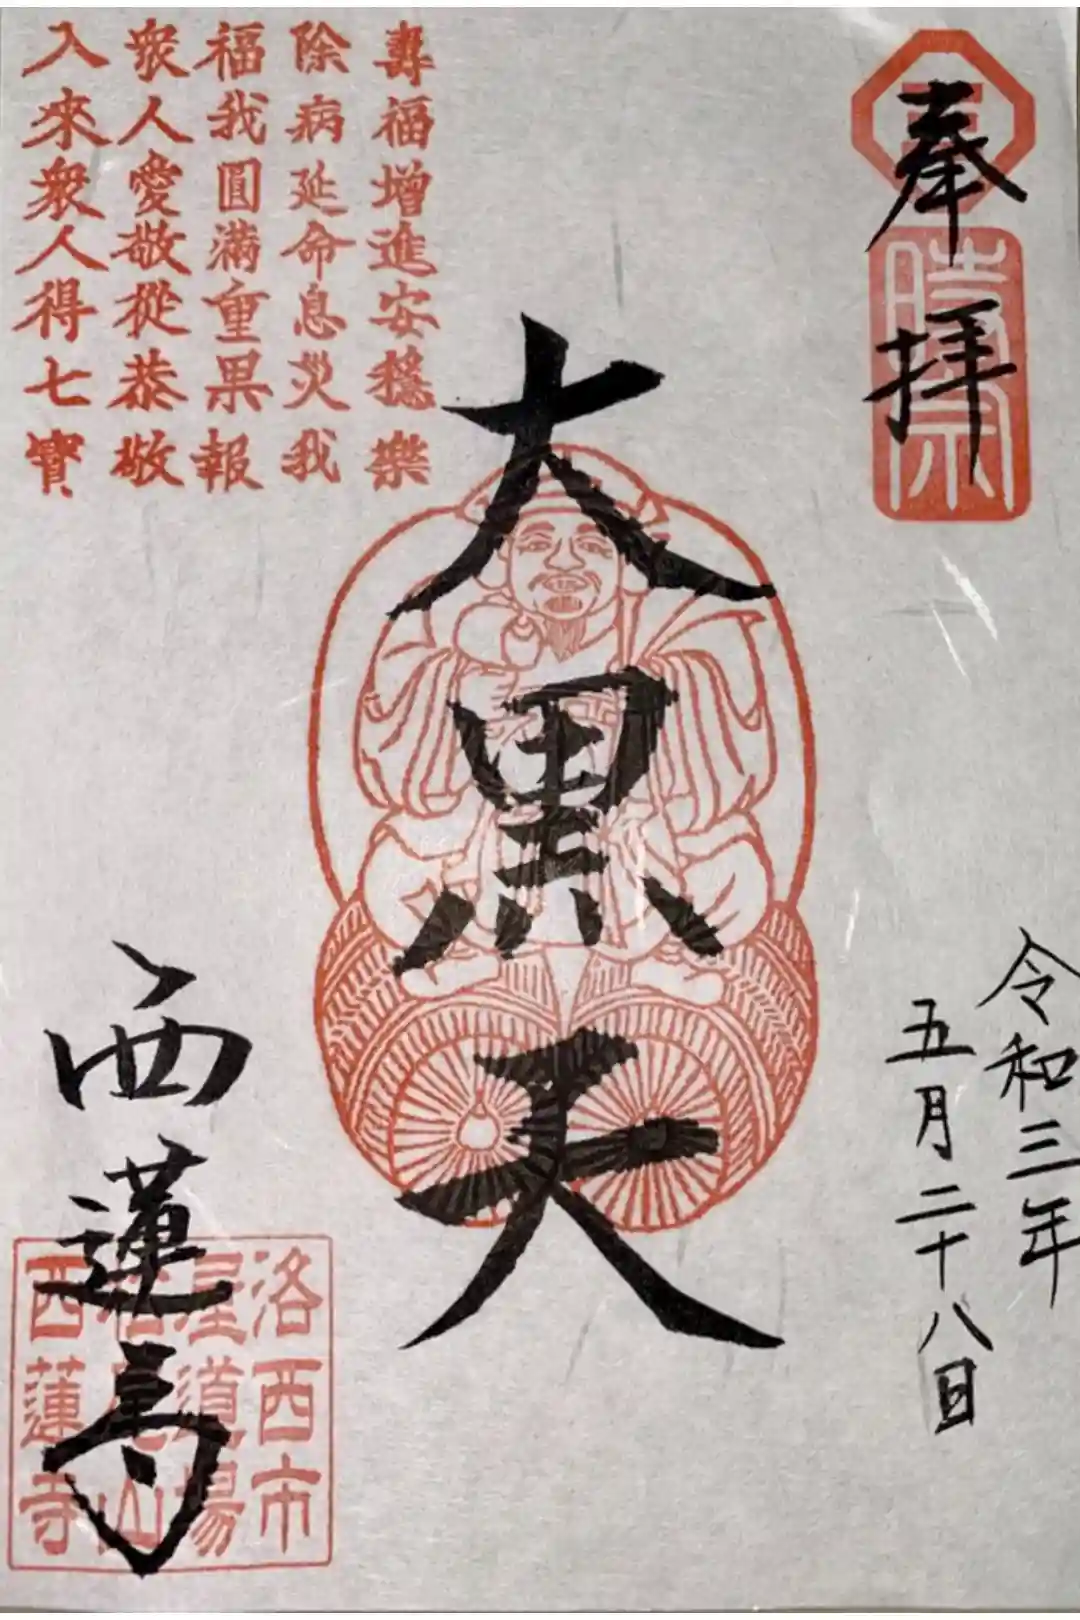 奉拝
時宗
令和三年
五月二十八日
大黒天
壽福增進安穩樂
除病延命息災我
福我圓滿重果報
衆人愛敬從恭敬
入來衆人得七寶
西蓮寺
洛西市
屋道場
西蓮寺